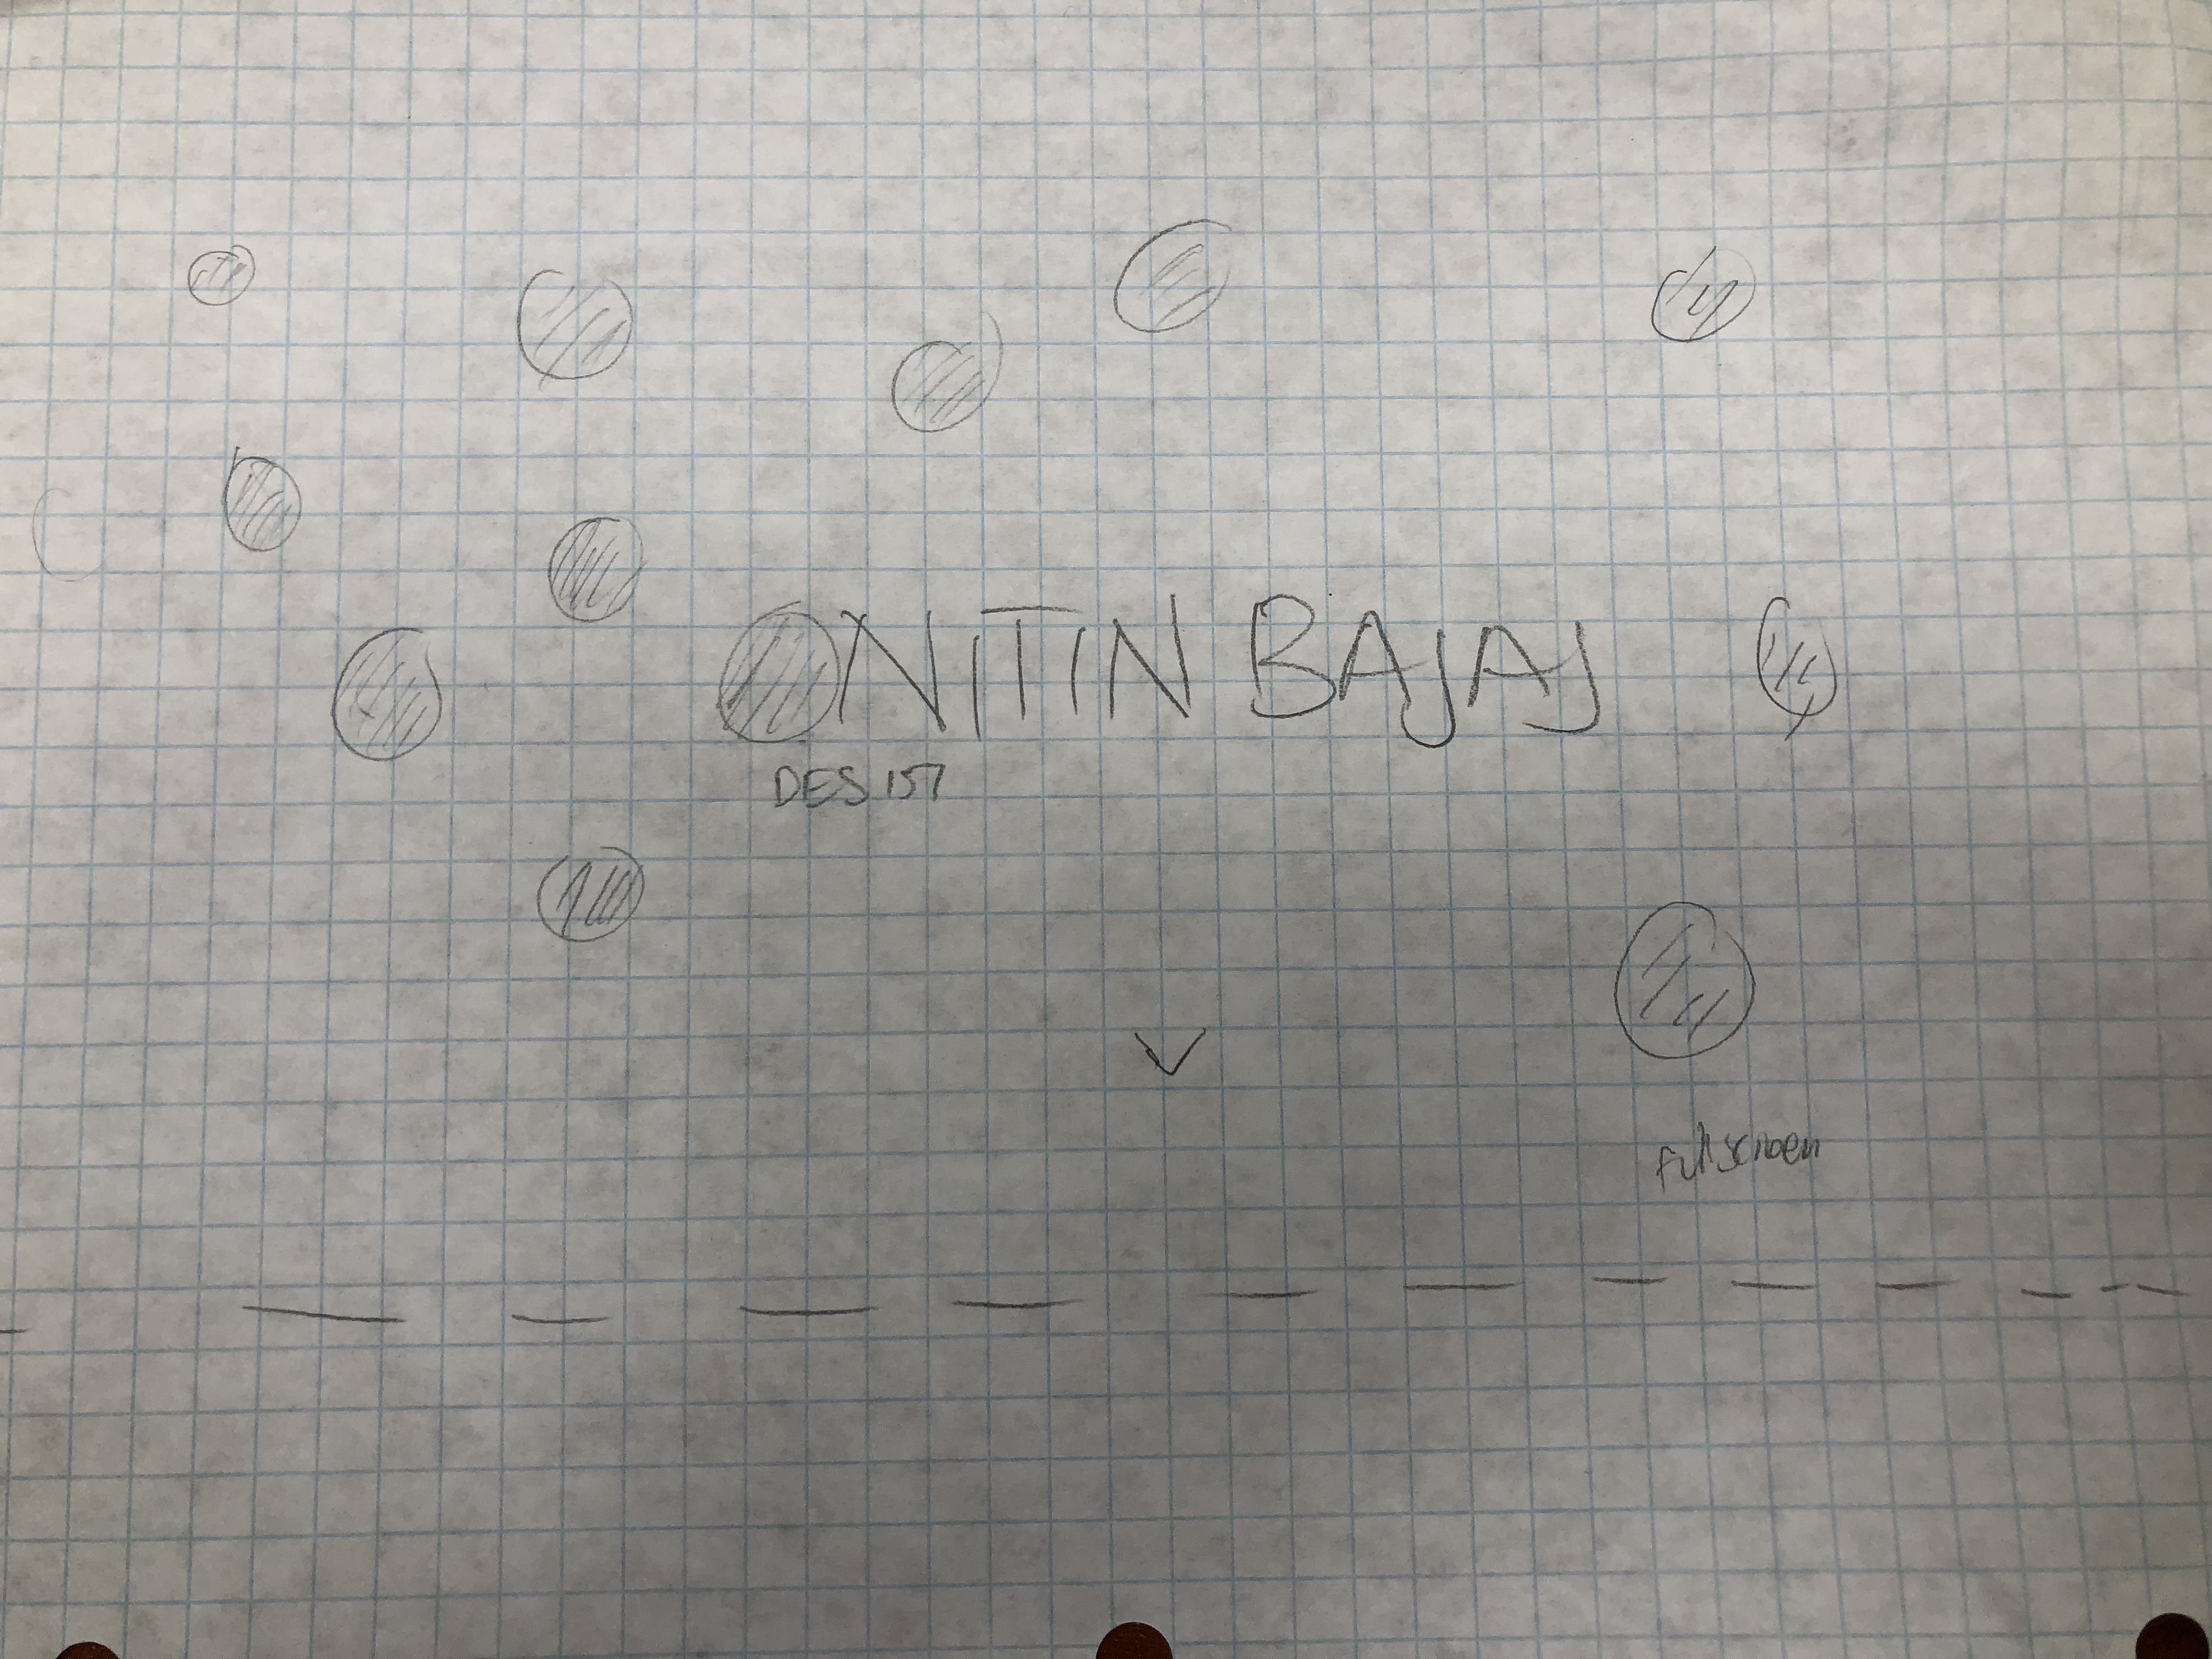 NITIN BAJAJ
DES 157
Fullscreen